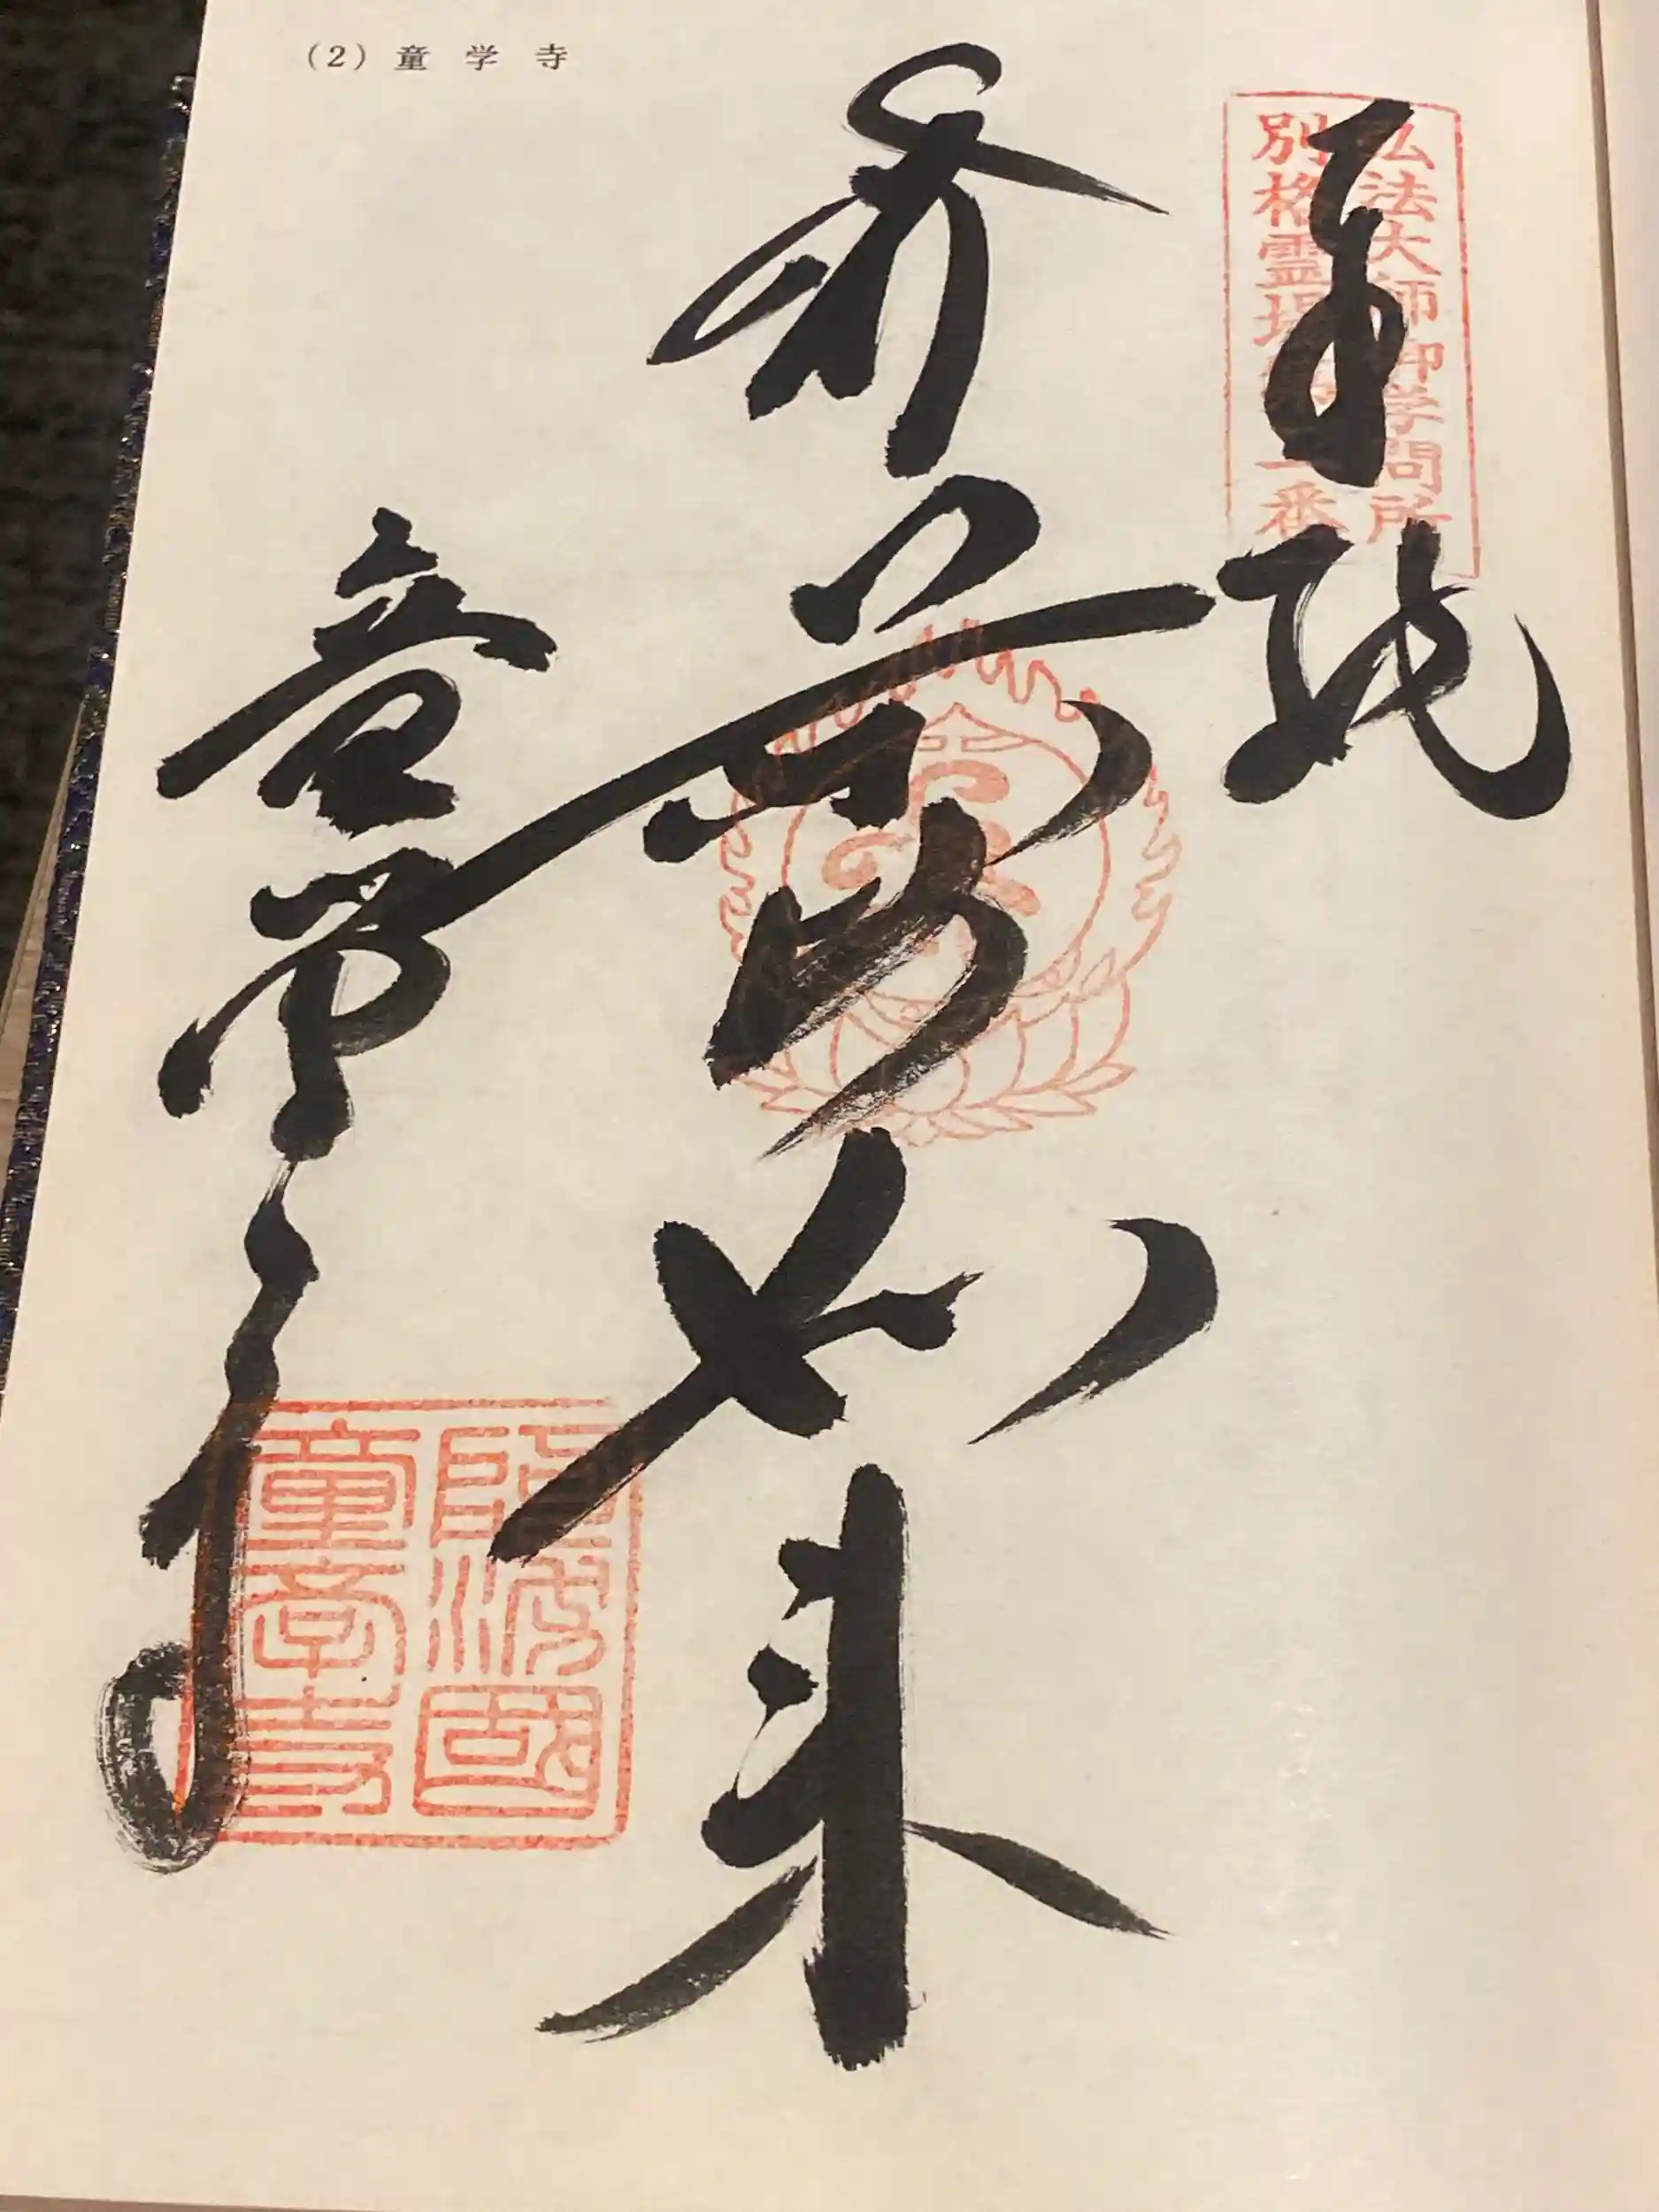 (2) 童学寺
弘法大師御学問所
別格霊場第二番
奉納
薬師如来
童学寺
阿波國
童学寺